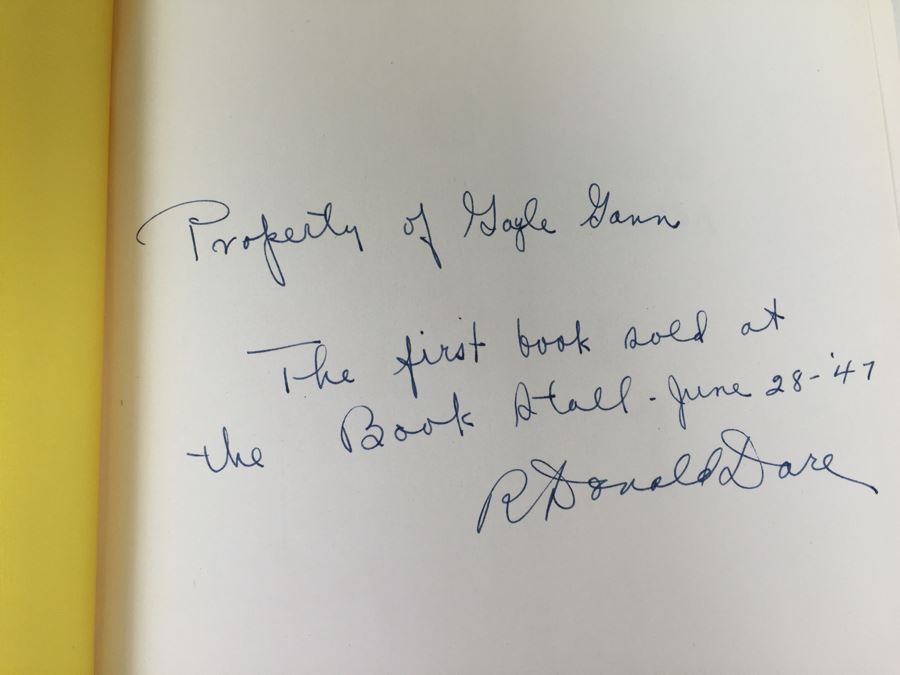 Property of Gayle Gann
The first book sold at
the Book Stall - June 28-'47
R Donald Dare